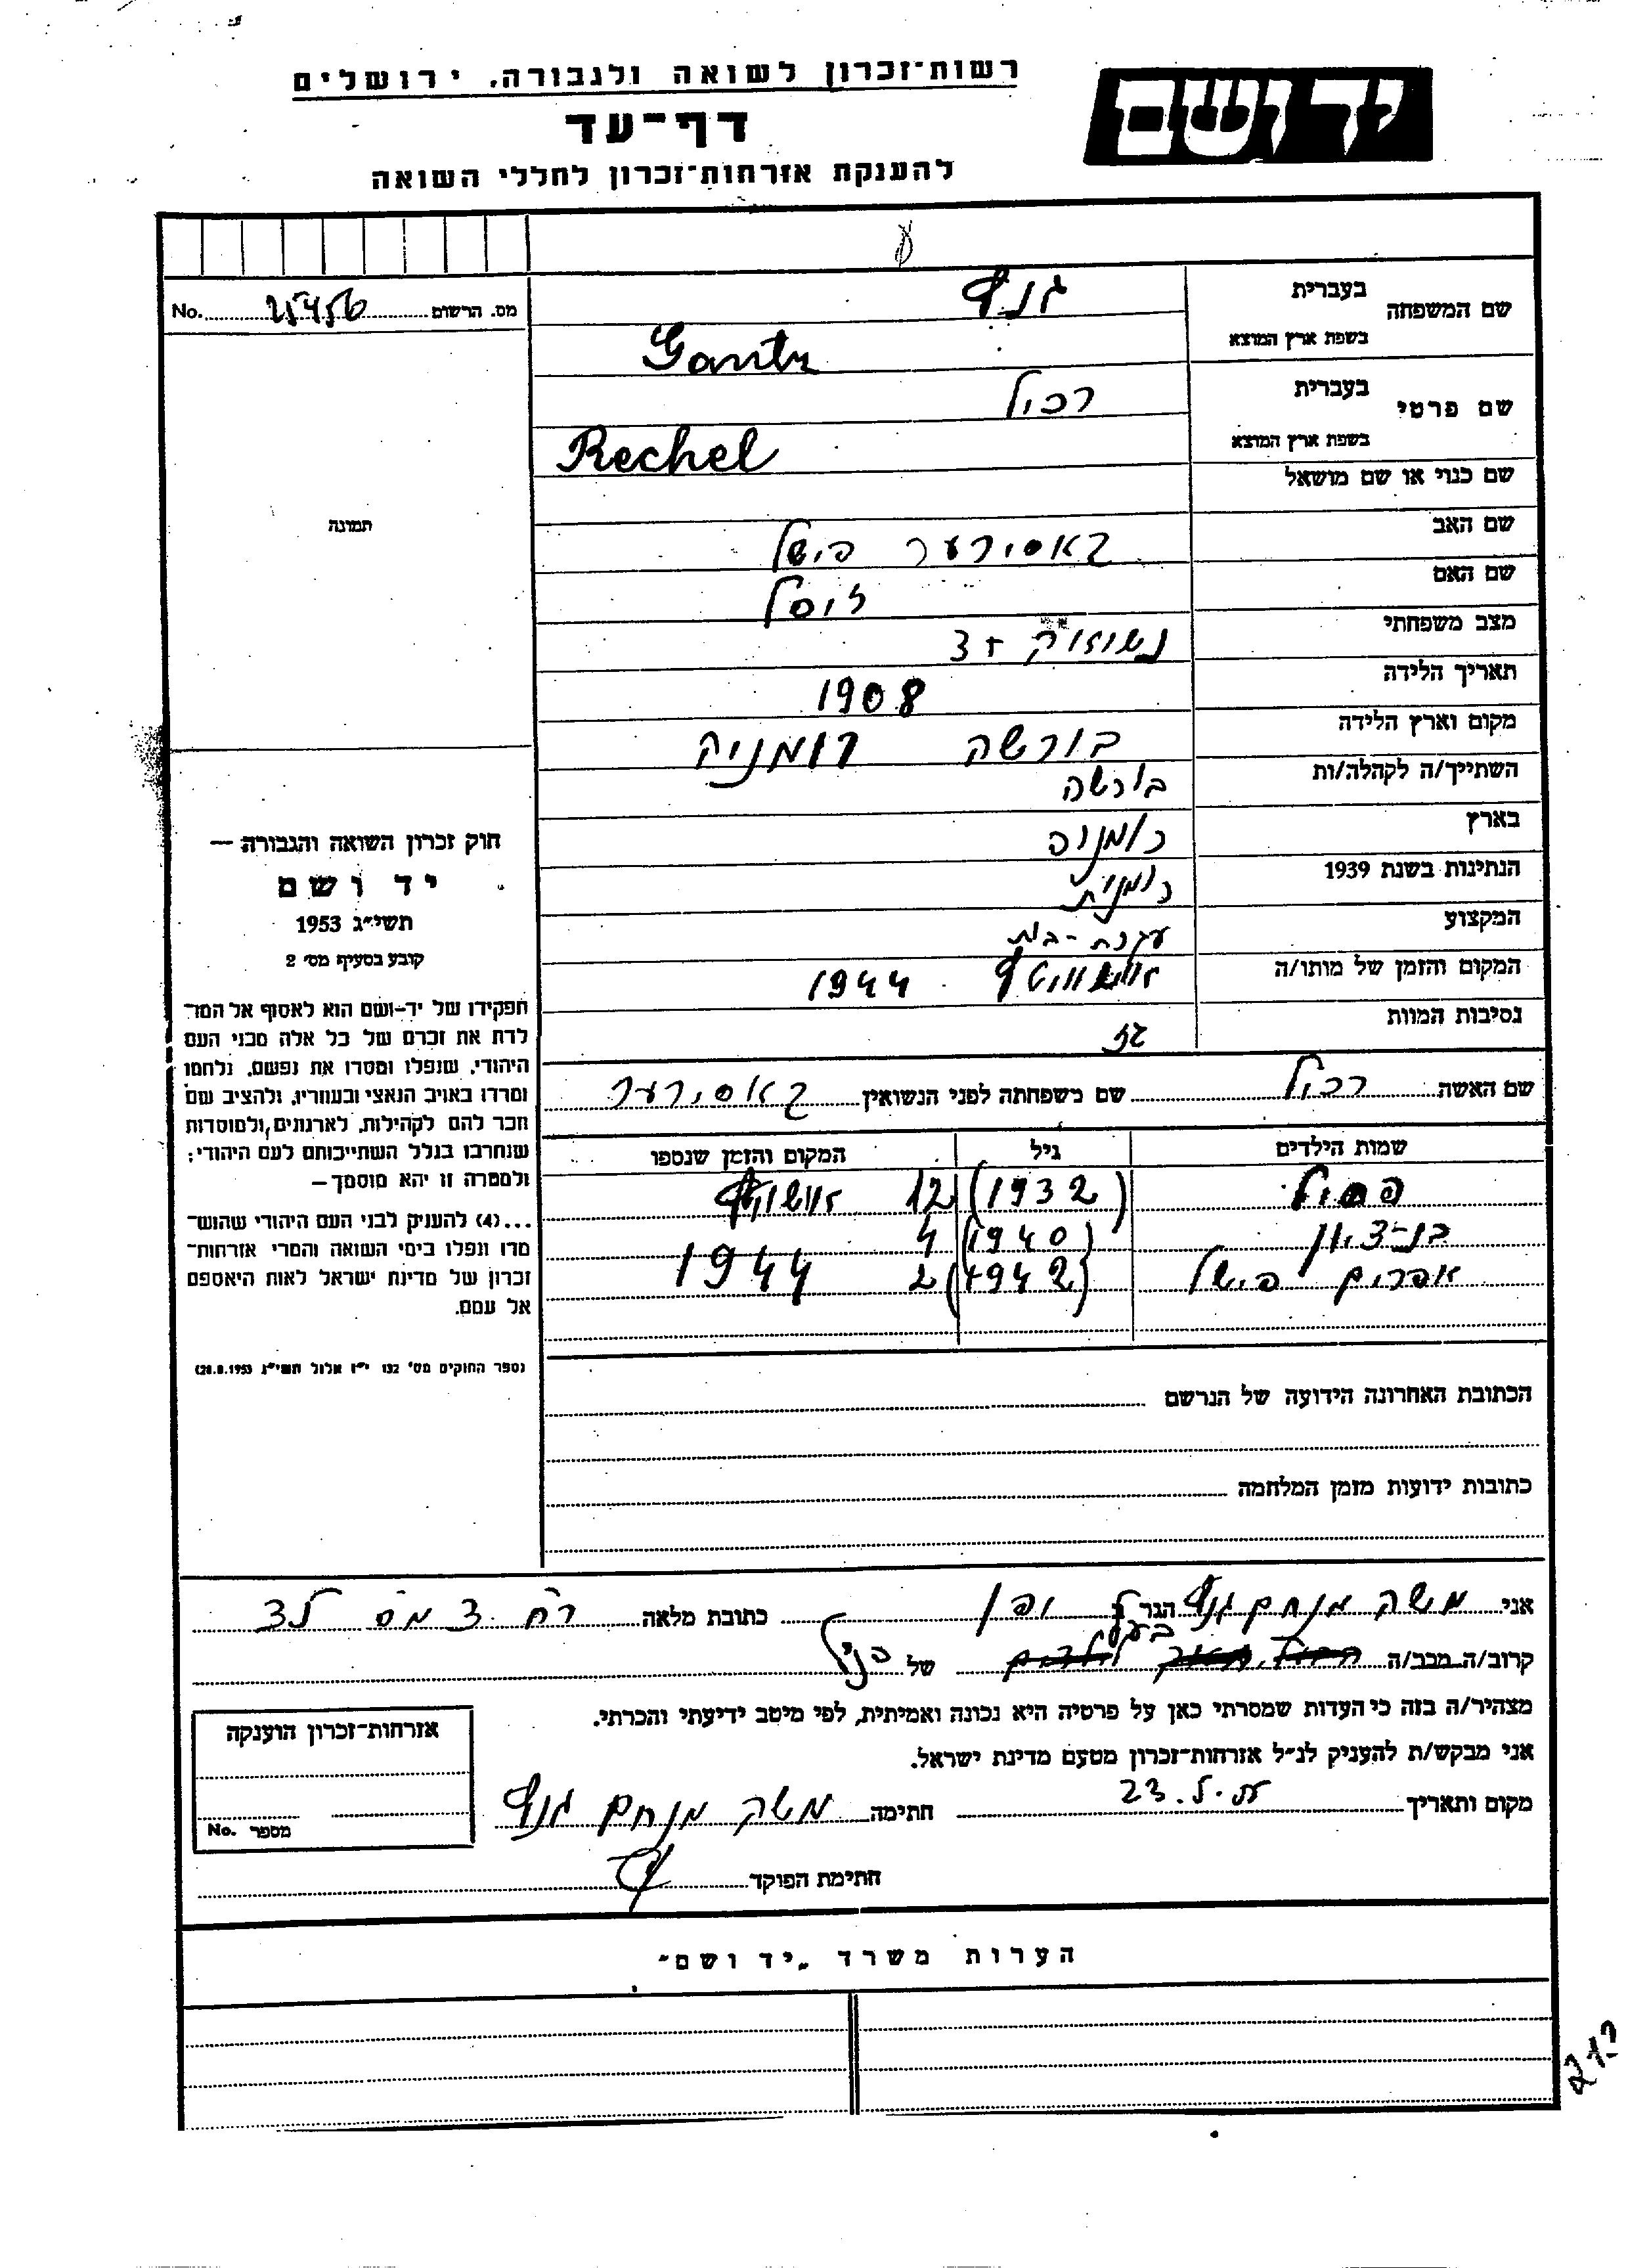 רשות־זכרון לשואה ולגבורה, ירושלים
יד ושם
דף־עד
להענקת אזרחות־זכרון לחללי השואה
שם המשפחה בעברית גנץ
בשפת ארץ המוצא Gantz
שם פרטי בעברית רכיל
בשפת ארץ המוצא Rechel
שם כנוי או שם מושאל
שם האב פישל
שם האם זיסל
מצב משפחתי נשואה 3+
תאריך הלידה 1908
מקום וארץ הלידה בורשה רומניה
השתייך/ה לקהלה/ות בורשה
בארץ רומניה
הנתינות בשנת 1939 רומנית
המקצוע עקרת-בית
המקום והזמן של מותו/ה אושוויץ 1944
נסיבות המוות גז
שם האשה רכיל שם משפחתה לפני הנשואין
שמות הילדים גיל המקום והזמן שנספו
(1932) 12 אושויץ
בן-ציון (1940) 4
אפרים פישל (1942) 2 1944
הכתובת האחרונה הידועה של הנרשם
כתובות ידועות מזמן המלחמה
No. מס. הרשום
תמונה
חוק זכרון השואה והגבורה —
יד ושם
תשי״ג 1953
קובע בסעיף מס׳ 2
תפקידו של יד-ושם הוא לאסוף אל המו־
לדת את זכרם של כל אלה מבני העם
היהודי, שנפלו ומסרו את נפשם, נלחמו
ומרדו באויב הנאצי ובעוזריו, ולהציב שם
וזכר להם לקהילות, לארגונים ולמוסדות
שנחרבו בגלל השתייכותם לעם היהודי;
ולמטרה זו יהא מוסמך —
...(4) להעניק לבני העם היהודי שהוש־
מדו ונפלו בימי השואה והמרי אזרחות־
זכרון של מדינת ישראל לאות היאספם
אל עמם.
(ספר החוקים מס׳ 132 י״ז אלול תשי״ג 28.8.1953)
אני משה מנחם גנץ הגר ב כתובת מלאה
קרוב/ה מכב/ה בעל של הנ״ל
מצהיר/ה בזה כי העדות שמסרתי כאן על פרטיה היא נכונה ואמיתית, לפי מיטב ידיעתי והכרתי.
אני מבקש/ת להעניק לנ״ל אזרחות־זכרון מטעם מדינת ישראל.
מקום ותאריך חתימה משה מנחם גנץ
חתימת הפוקד
אזרחות־זכרון הוענקה
מספר No.
הערות משרד „יד ושם״